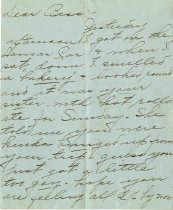 Dear Bess—
Yesterday
afternoon I got on the
car & when I
sat down I smelled
a bakery & looked round
and it was your
sister with hot rolls
etc for Sunday. She
told me you were
kinda banged up from
your trip. I guess you
just got a little
too gay. hope you
are feeling all O.K. by now